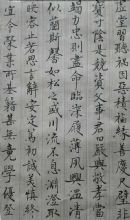 虛堂習聽禍因惡積福緣善慶尺璧
非寶寸陰是競資父事君曰嚴與敬孝當
竭力忠則盡命臨深履薄夙興溫凊
似蘭斯馨如松之盛川流不息淵澄取
映容止若思言辭安定篤初誠美慎終
宜令榮業所基籍甚無竟學優